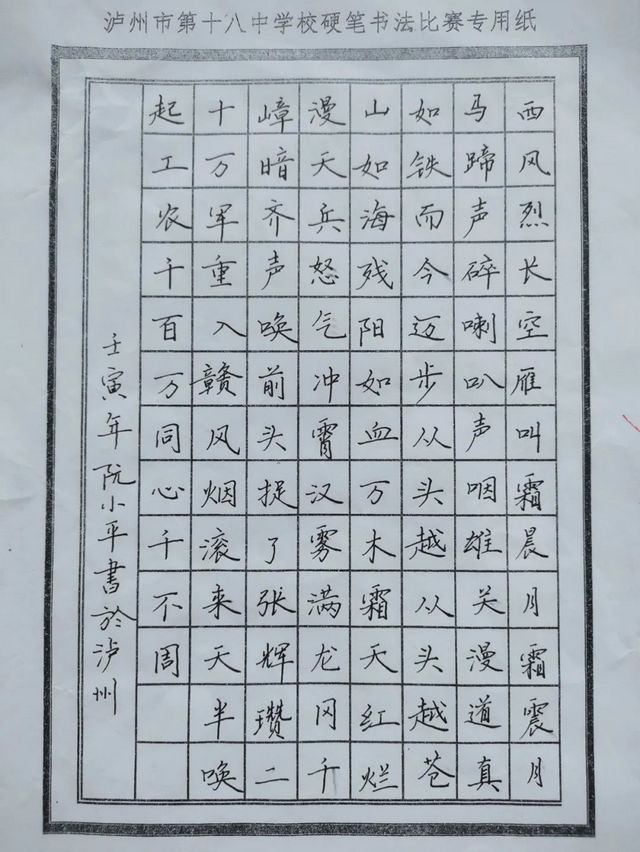 泸州市第十八中学校硬笔书法比赛专用纸
西风烈长空雁叫霜晨月霜震月
马蹄声碎喇叭声咽雄关漫道真
如铁而今迈步从头越从头越苍
山如海残阳如血万木霜天红烂
漫天兵怒气冲霄汉雾满龙冈千
嶂暗齐声唤前头捉了张辉瓒二
十万军重入赣风烟滚来天半唤
起工农千百万同心千不周
壬寅年阮小平書於泸州